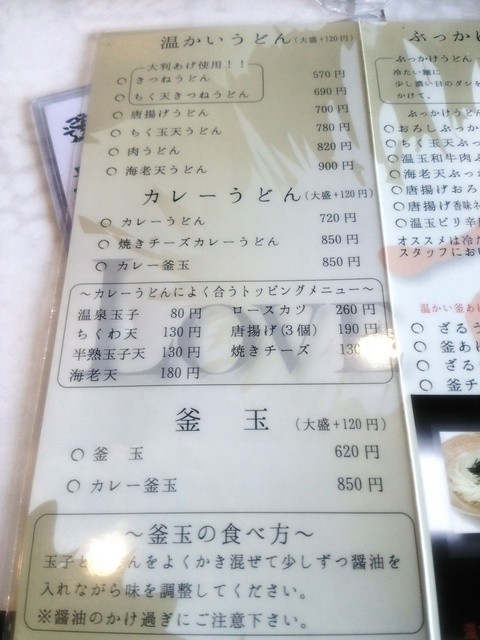 温かいうどん(大盛+120円)
大判あげ使用!!
○きつねうどん 570円
○ちく天きつねうどん 690円
○唐揚げうどん 700円
○ちく玉天うどん 780円
○肉うどん 820円
○海老天うどん 900円
カレーうどん(大盛+120円)
○カレーうどん 720円
○焼きチーズカレーうどん 850円
○カレー釜玉 850円
～カレーうどんによく合うトッピングメニュー～
温泉玉子 80円 ロースカツ 260円
ちくわ天 130円 唐揚げ(3個) 190円
半熟玉子天 130円 焼きチーズ 130
海老天 180円
LOVE
釜玉 (大盛+120円)
○釜玉 620円
○カレー釜玉 850円
～釜玉の食べ方～
玉子とんをよくかき混ぜて少しずつ醤油を
入れながら味を調整してください。
※醤油のかけ過ぎにご注意下さい。
ぶっかけ
ぶっかけうどん
冷たい麺に
少し濃い目のダシを
かけて。
ぶっかけうどん
○おろしぶっか
○ちく玉天ぶっ
○温玉和牛肉ぶ
○海老天ぶっか
○唐揚げおろ
○唐揚げ香味
○温玉ピリ辛
オススメは冷た
スタッフにお
温かい釜あ
○ざるう
○釜あ
○ざる
○釜チ